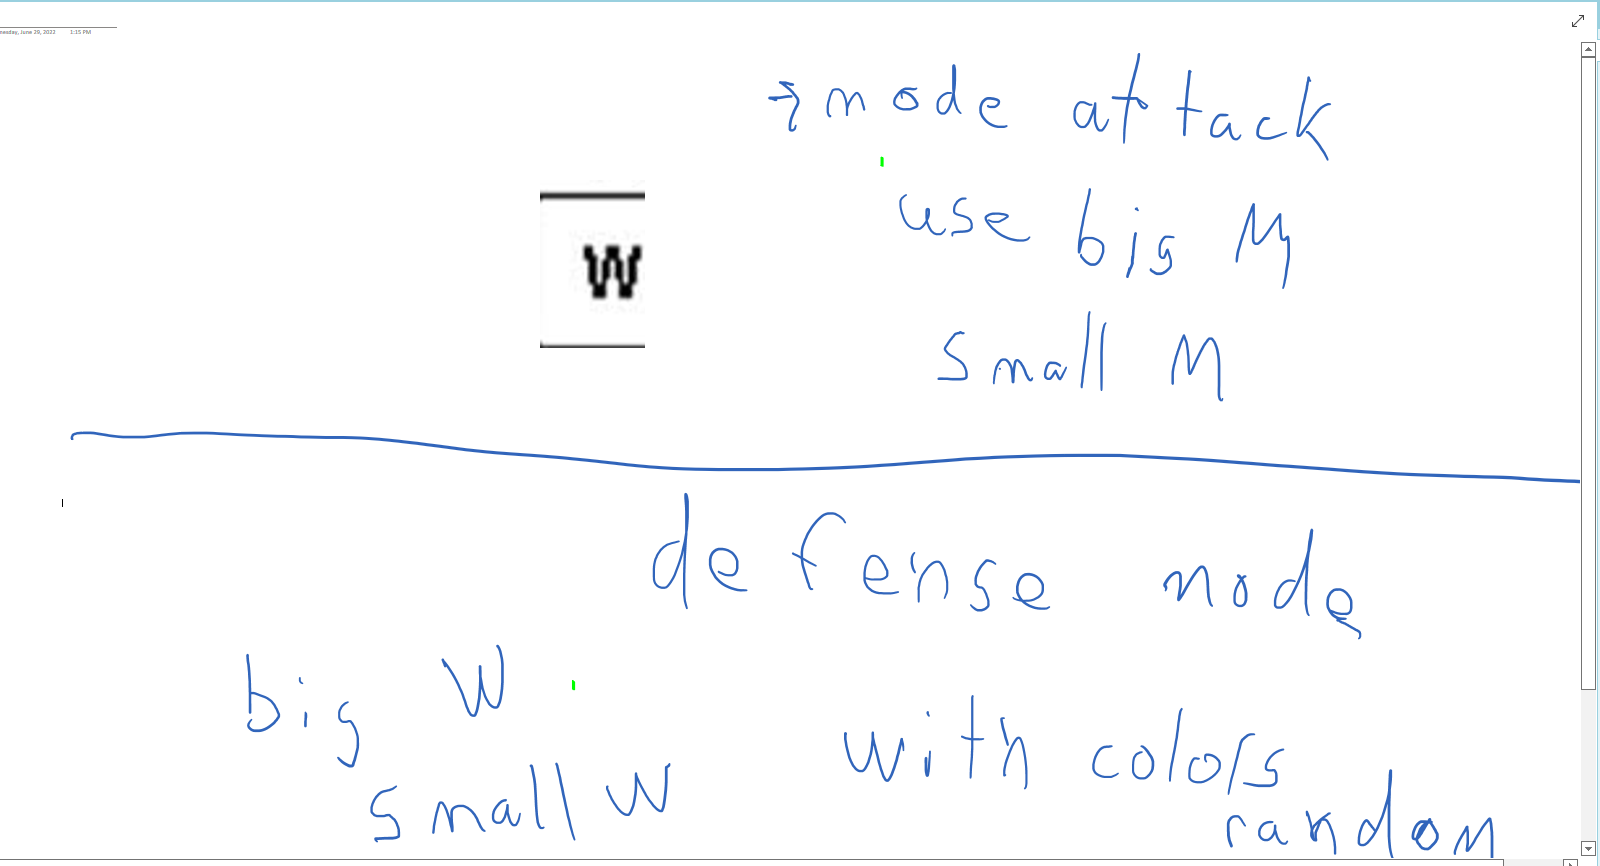 nesday, June 29, 2022 1:15 PM
→ mode attack
use big M
W
small M
defense mode
big W
with colors
small W
random